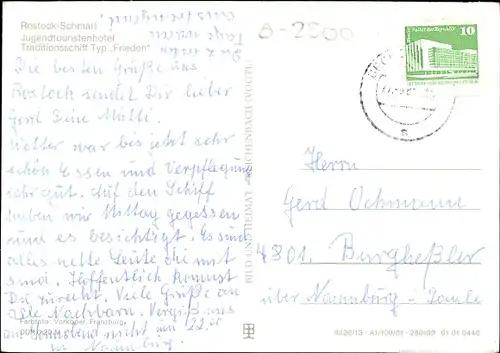 Rostock-Schmarl
Jugendtouristenhotel
Traditionsschiff Typ „Frieden"
Die besten Grüße aus
Rostock sendet Dir lieber
Gerd Deine Mutti.
Wetter war bis jetzt sehr
schön Essen und Verpflegung
sehr gut. Auf den Schiff
haben wir Mittag gegessen
und es besichtigt. Es sind
alles nette Leute die mit
sind. Hoffentlich kommst
Du zurecht. Viele Grüße an
alle Nachbarn. Vergiß uns
am Sonnabend nicht um 22.00
in Naumburg.
Die 2 ersten
Tage waren
Farbfoto: Frantzburg
A-2500
10
Herrn
Gerd Ochmann
4801 Burgheßler
über Naumburg - Saale
BILD UND HEIMAT REICHENBACH (VOGTL)
A1/109/81
01 01 0446